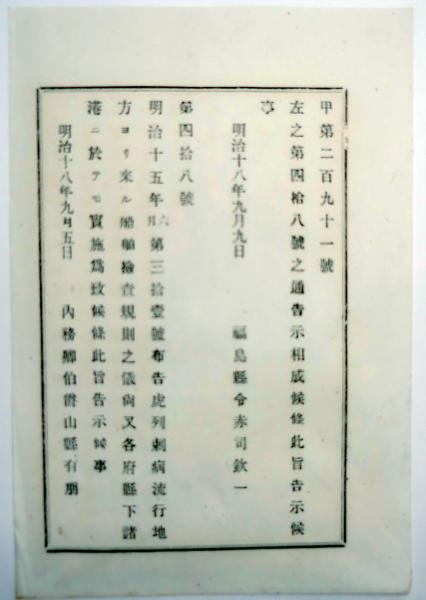 甲第二百九十一號
左之第四拾八號之通告示相成候條此旨告示候
事
明治十八年九月九日　福島縣令赤司欽一
第四拾八號
明治十五年六月第三拾壹號布告虎列剌病流行地
方ヨリ來ル船舶檢査規則之儀尚又各府縣下諸
港ニ於テモ實施爲致候條此旨告示候事
明治十八年九月五日　內務卿伯爵山縣有朋